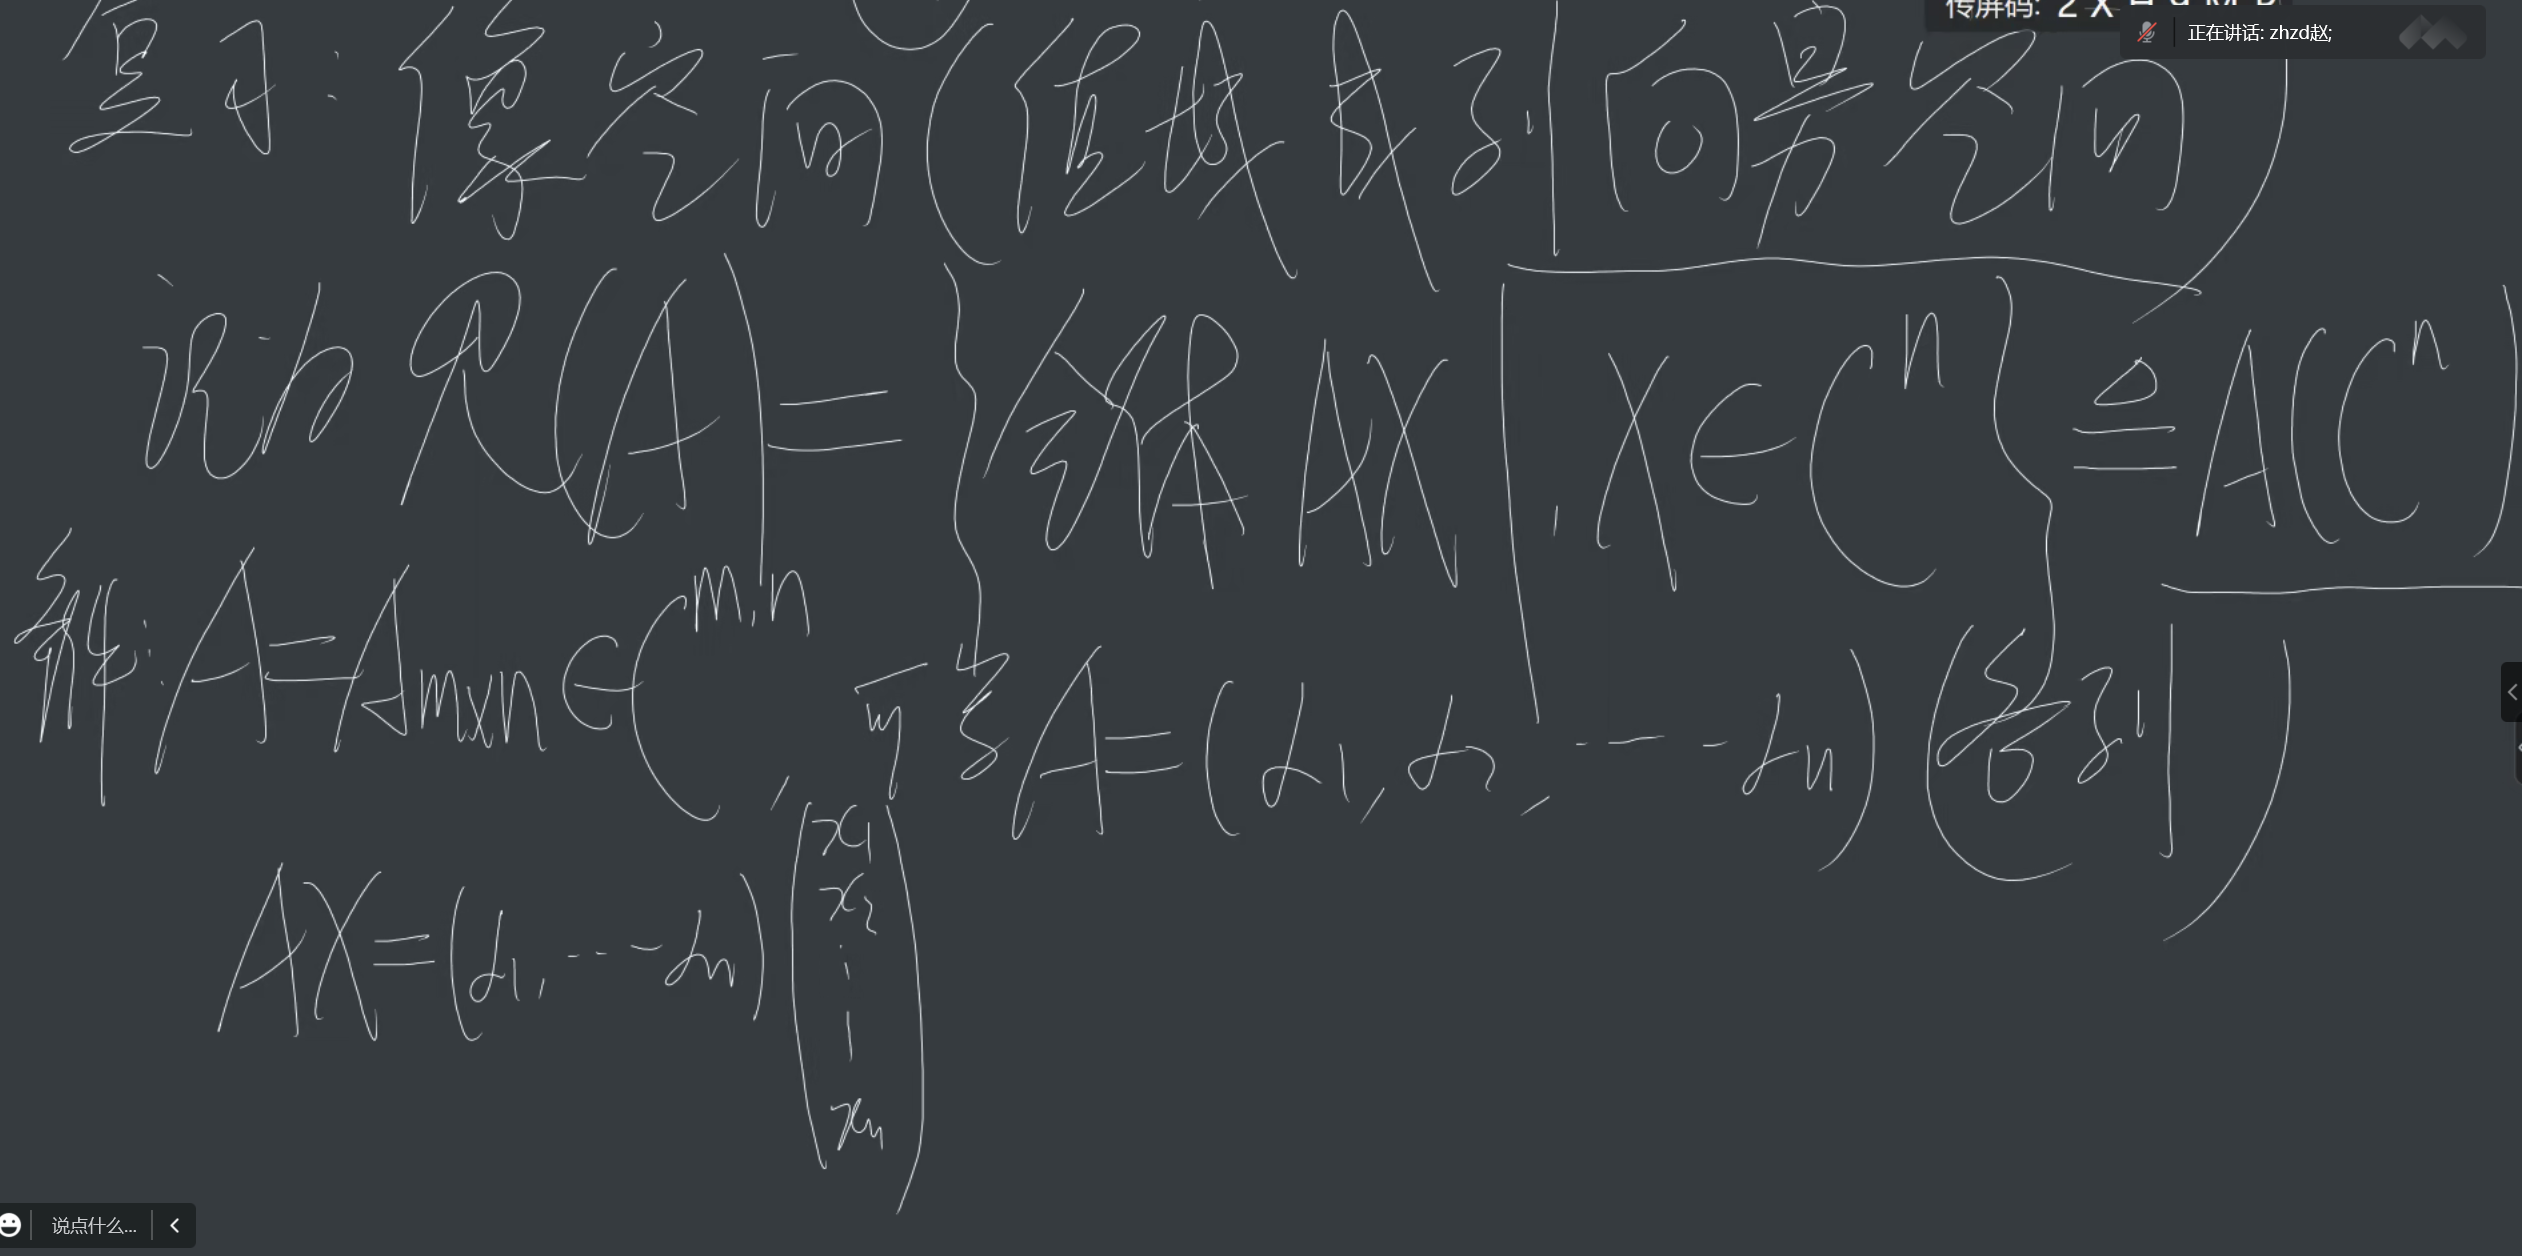 传屏码: 2 X
正在讲话: zhzd赵;
复习: 像空间(值域或列向量空间)
记为 R(A) = {全体 AX | , X ∈ C^n} ≜ A(C^n)
解: A = A_{m×n} ∈ C^{m,n}, 可写 A = (α_1, α_2, ---- α_n) (各列)
AX = (α_1, --- α_n) (x_1
x_2
⋮
x_n)
说点什么...